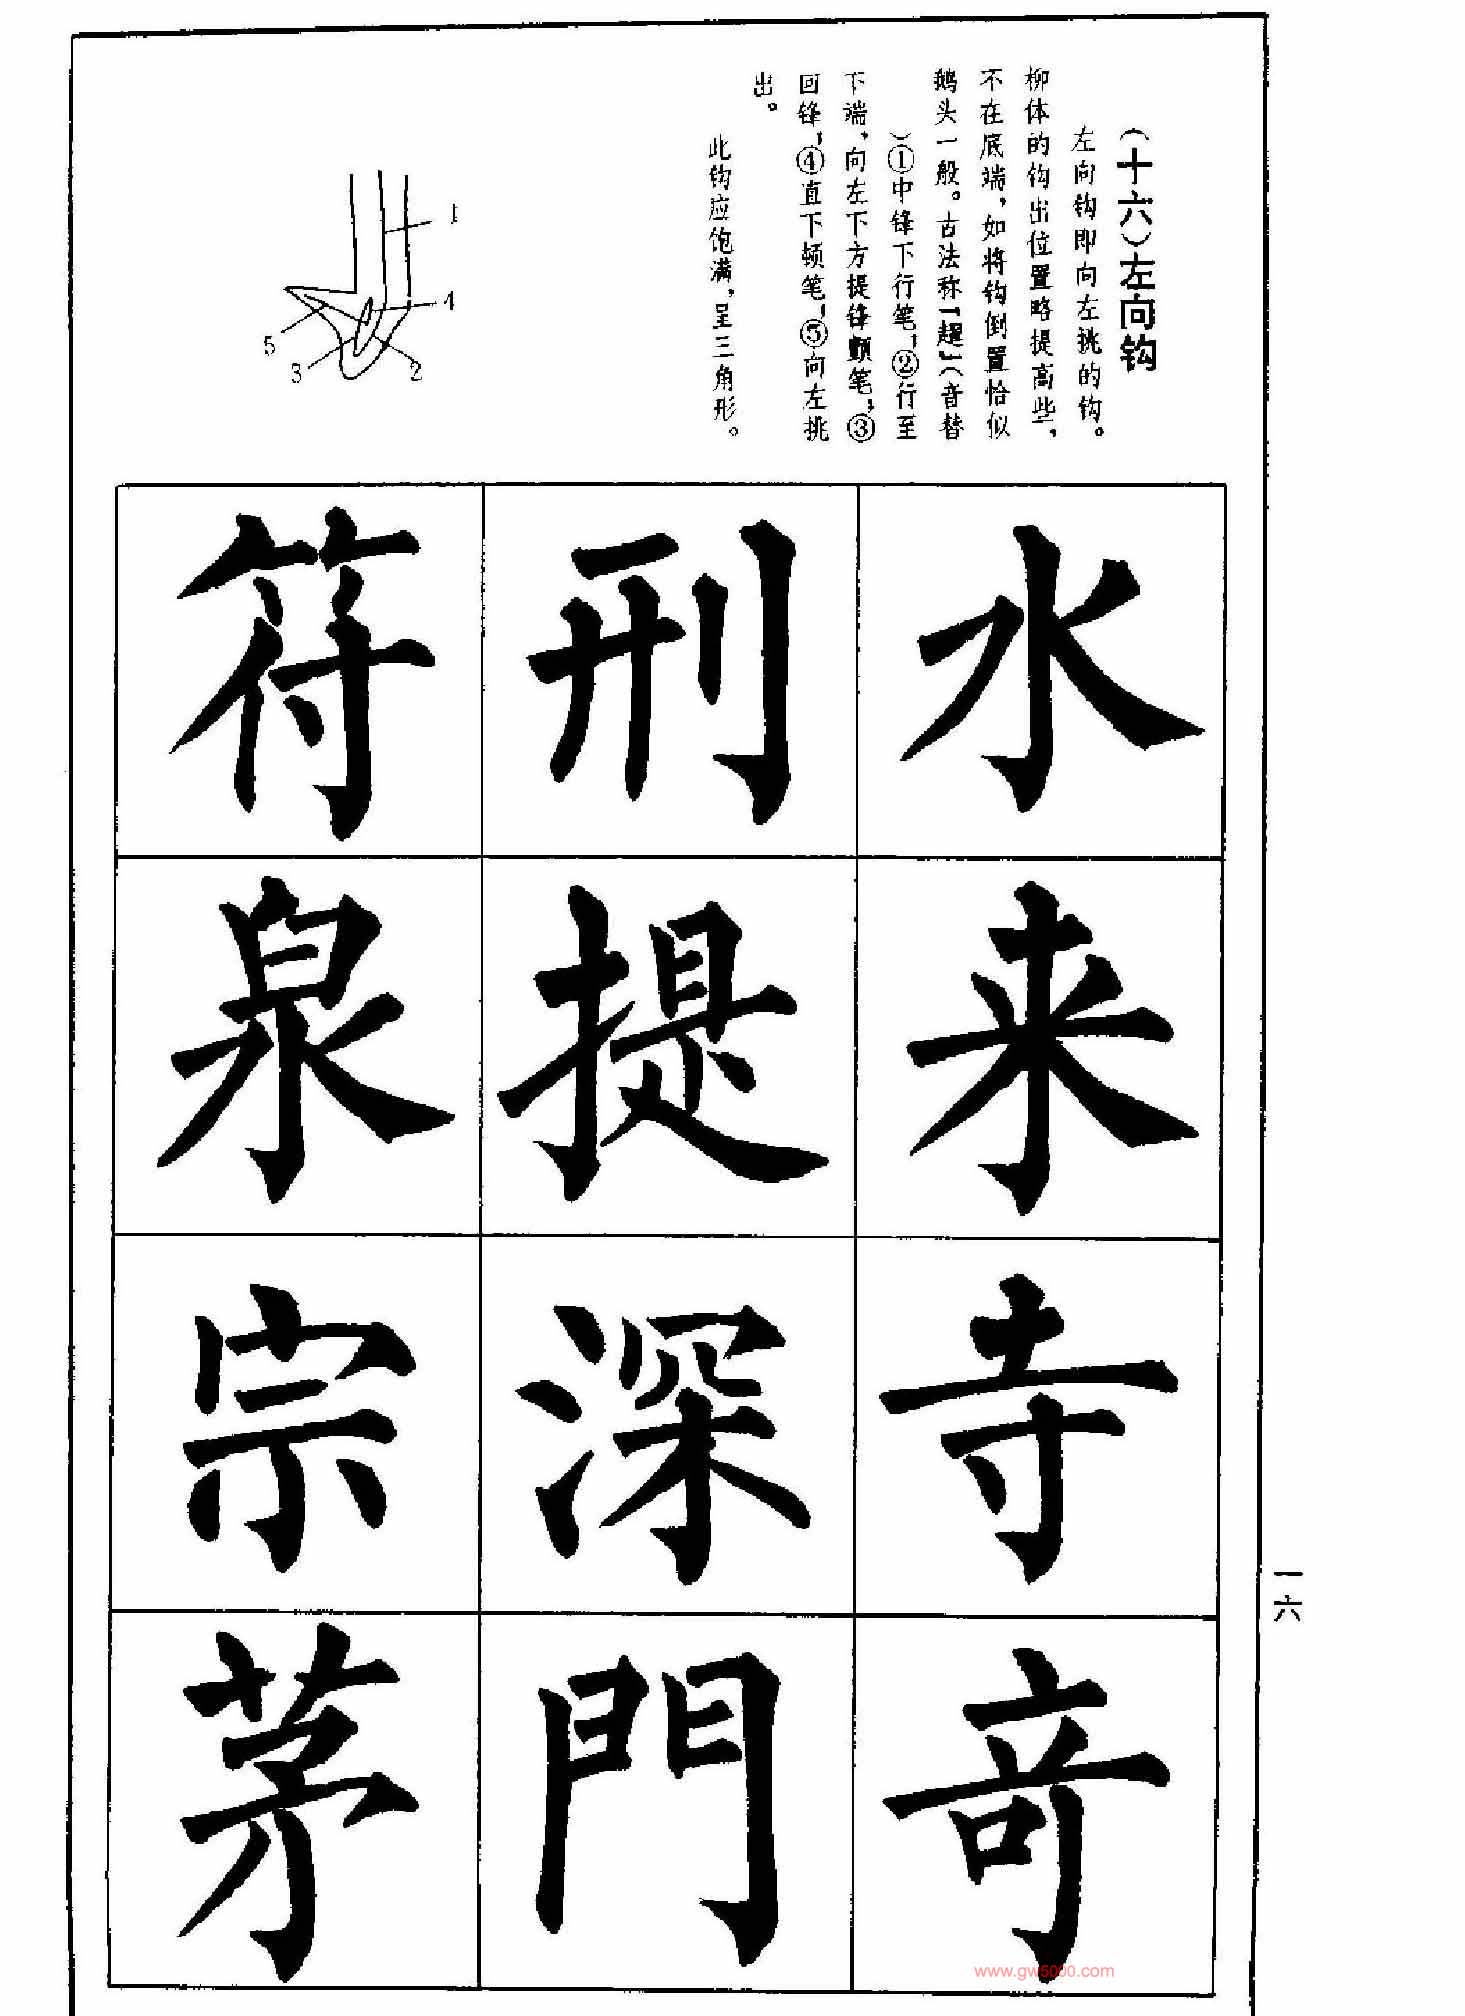 （十六）左向钩
左向钩即向左挑的钩。
柳体的钩出位置略提高些，
不在底端，如将钩倒置恰似
鹅头一般。古法称「趯」（音替
）①中锋下行笔，②行至
下端，向左下方提锋颤笔，③
回锋，④直下顿笔，⑤向左挑
出。
此钩应饱满，呈三角形。
1
4
5
3
2
水
来
寺
竒
刑
提
深
門
符
泉
宗
茅
一六
www.gw5000.com